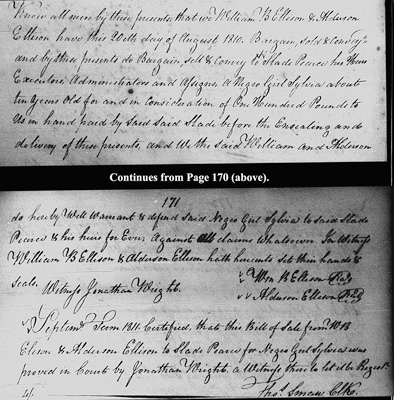 Know all men by these presents, that we William B Ellison & Alderson
Ellison have this 20th day of August 1810. Bargain, sold & convey
and by these presents do Bargain, sell & convey to Slade Pearce his Heirs
Executors, Administrators and Assigns, a Negro Girl Sylvia about
ten years Old for and in Consideration of One Hundred Pounds to
Us in hand paid by said said Slade before the Ensealing and
delivery of these presents, and We the said William and Alderson
Continues from Page 170 (above).
171
do hereby Well Warrant & defend said Negro Girl Sylvia to said Slade
Pearce & his heirs for Ever. Against all claims Whatsoever In Witness
William B Ellison & Alderson Ellison hath hereunto set their hands &
seals. Witness Jonathan Wright. Wm B Ellison
Alderson Ellison
Septem. Term 1811. Certified, that this Bill of Sale from W B
Elison & Alderson Ellison to Slade Pearce for Negro Girl Sylvia was
proved in Court by Jonathan Wright. a Witness thereto let it be Regist.
Thos. Smaw Clk.